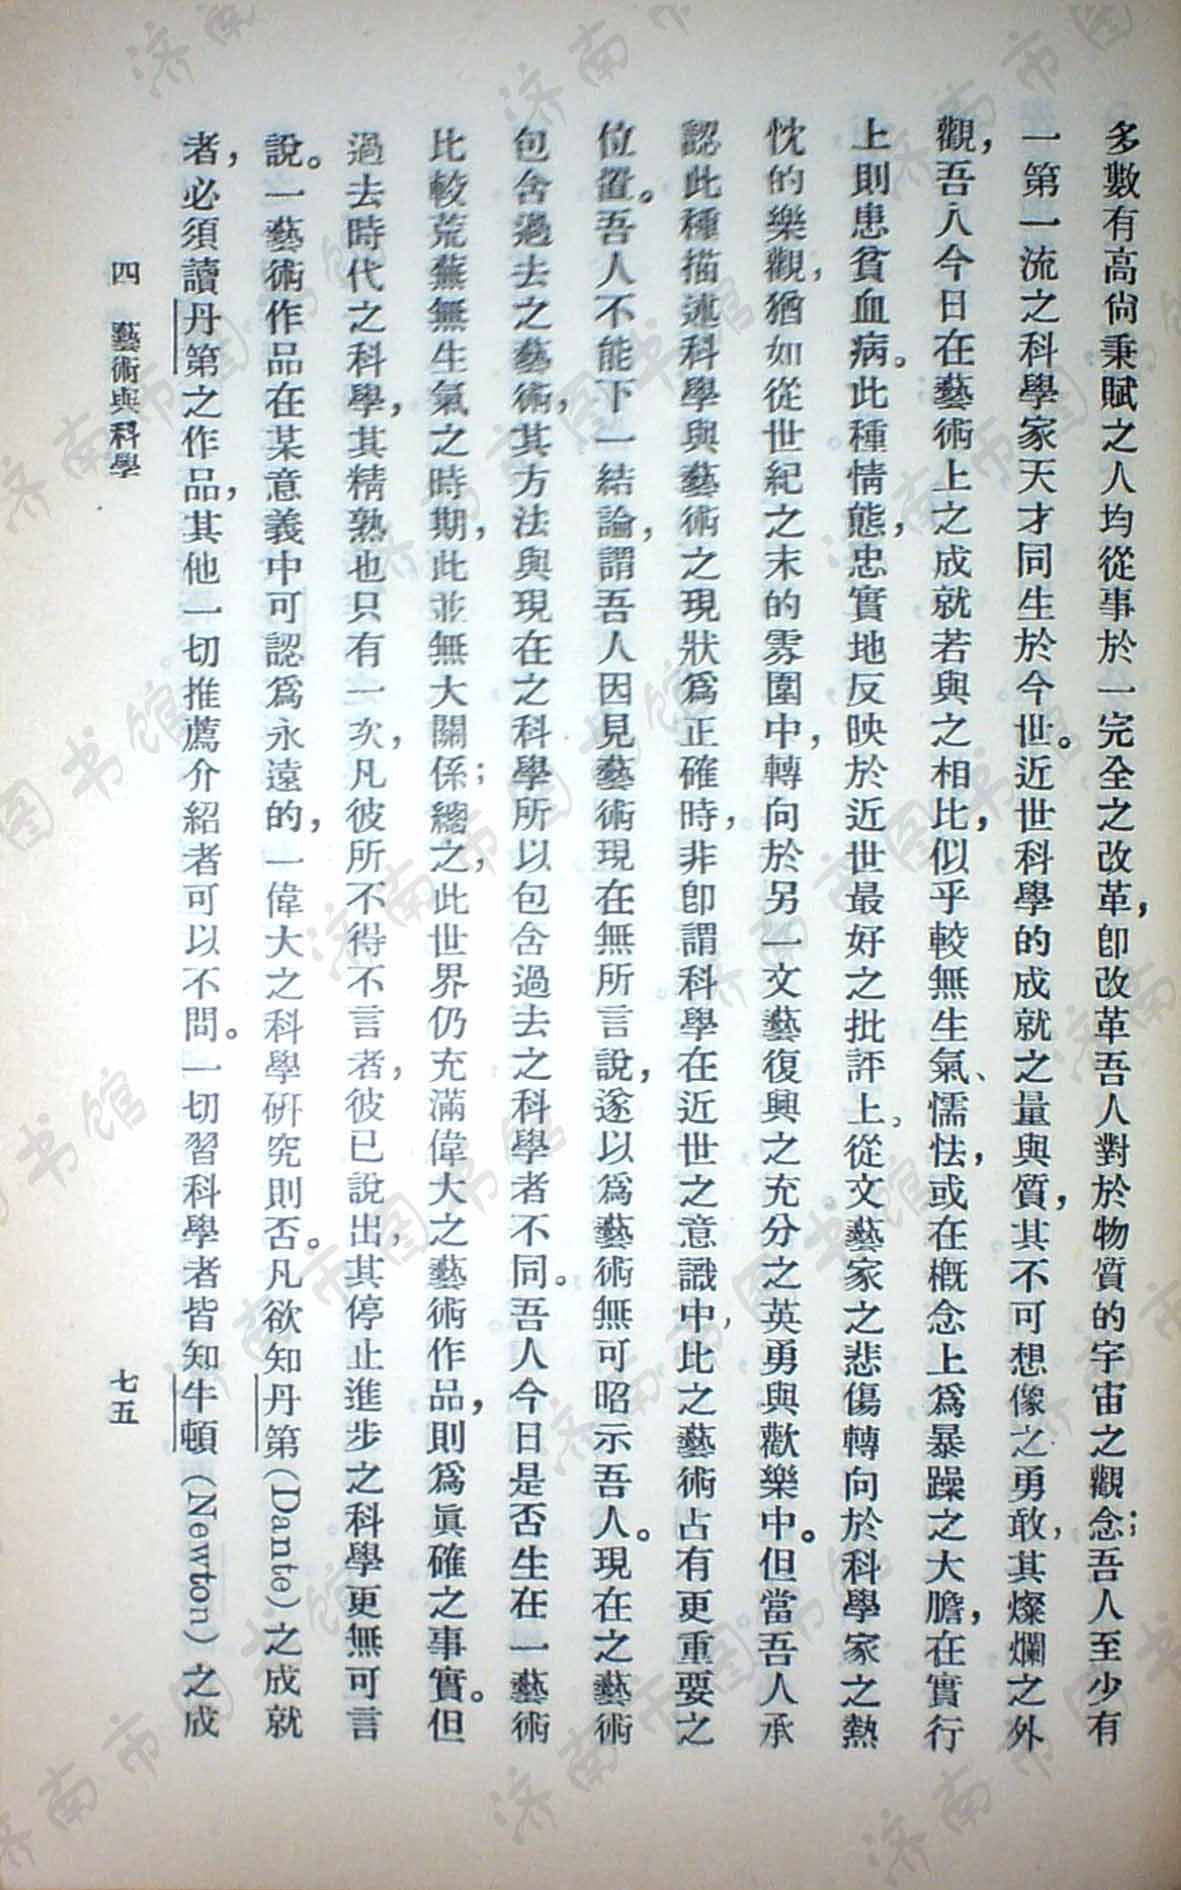 多數有高尙秉賦之人均從事於一完全之改革，卽改革吾人對於物質的宇宙之觀念；吾人至少有
一第一流之科學家天才同生於今世。近世科學的成就之量與質，其不可想像之勇敢，其燦爛之外
觀，吾人今日在藝術上之成就若與之相比，似乎較無生氣、懦怯，或在槪念上爲暴躁之大膽，在實行
上則患貧血病。此種情態，忠實地反映於近世最好之批評上。從文藝家之悲傷轉向於科學家之熱
忱的樂觀，猶如從世紀之末的雰圍中，轉向於另一文藝復興之充分之英勇與歡樂中。但當吾人承
認此種描述科學與藝術之現狀爲正確時，非卽謂科學在近世之意識中，比之藝術占有更重要之
位置。吾人不能下一結論，謂吾人因見藝術現在無所言說，遂以爲藝術無可昭示吾人。現在之藝術
包含過去之藝術，其方法與現在之科學所以包含過去之科學者不同。吾人今日是否生在一藝術
比較荒蕪無生氣之時期，此並無大關係；總之，此世界仍充滿偉大之藝術作品，則爲眞確之事實。但
過去時代之科學，其精熟也只有一次，凡彼所不得不言者，彼已說出，其停止進步之科學更無可言
說。一藝術作品在某意義中可認爲永遠的，一偉大之科學硏究則否。凡欲知丹第（Dante）之成就
者，必須讀丹第之作品，其他一切推薦介紹者可以不問。一切習科學者皆知牛頓（Newton）之成
四　藝術與科學
七五
济南市图书馆